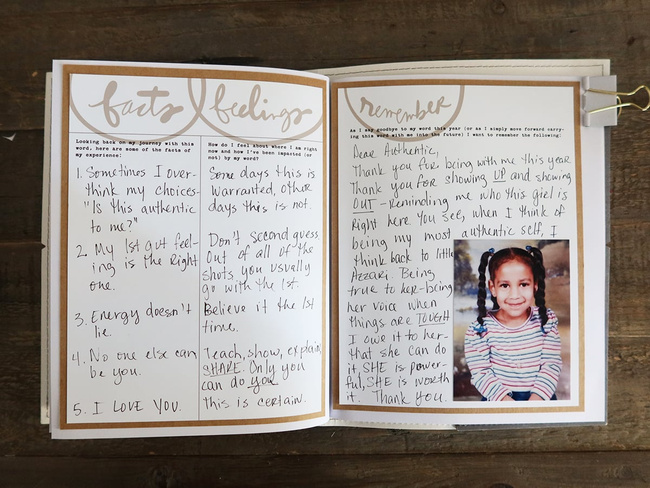 facts
feelings
Looking back on my journey with this
word, here are some of the facts of
my experience:
How do I feel about where I am right
now and how I've been impacted (or
not) by my word?
1. Sometimes I over-
think my choices-
"Is this authentic
to me?"
Some days this is
warranted, other
days this is not.
2. My 1st gut feel-
ing is the Right
one.
Don't second guess
Out of all of the
shots you usually
go with the 1st.
3. Energy doesn't
lie.
Believe it the 1st
time.
4. No one else can
be you.
Teach, show, explain,
SHARE. Only you
can do you
5. I LOVE YOU.
this is certain.
remember
As I say goodbye to my word this year (or as I simply move forward carry-
ing this word with me into the future) I want to remember the following:
Dear Authentic,
Thank you for being with me this year
Thank you for showing UP and showing
OUT - Reminding me who this girl is
Right here. You see, when I think of
being my most authentic self, I
think back to little
Azzari. Being
true to her-being
her voice when
things are TOUGH
I owe it to her-
that she can do
it, SHE is power-
ful, SHE is worth
it. Thank you.